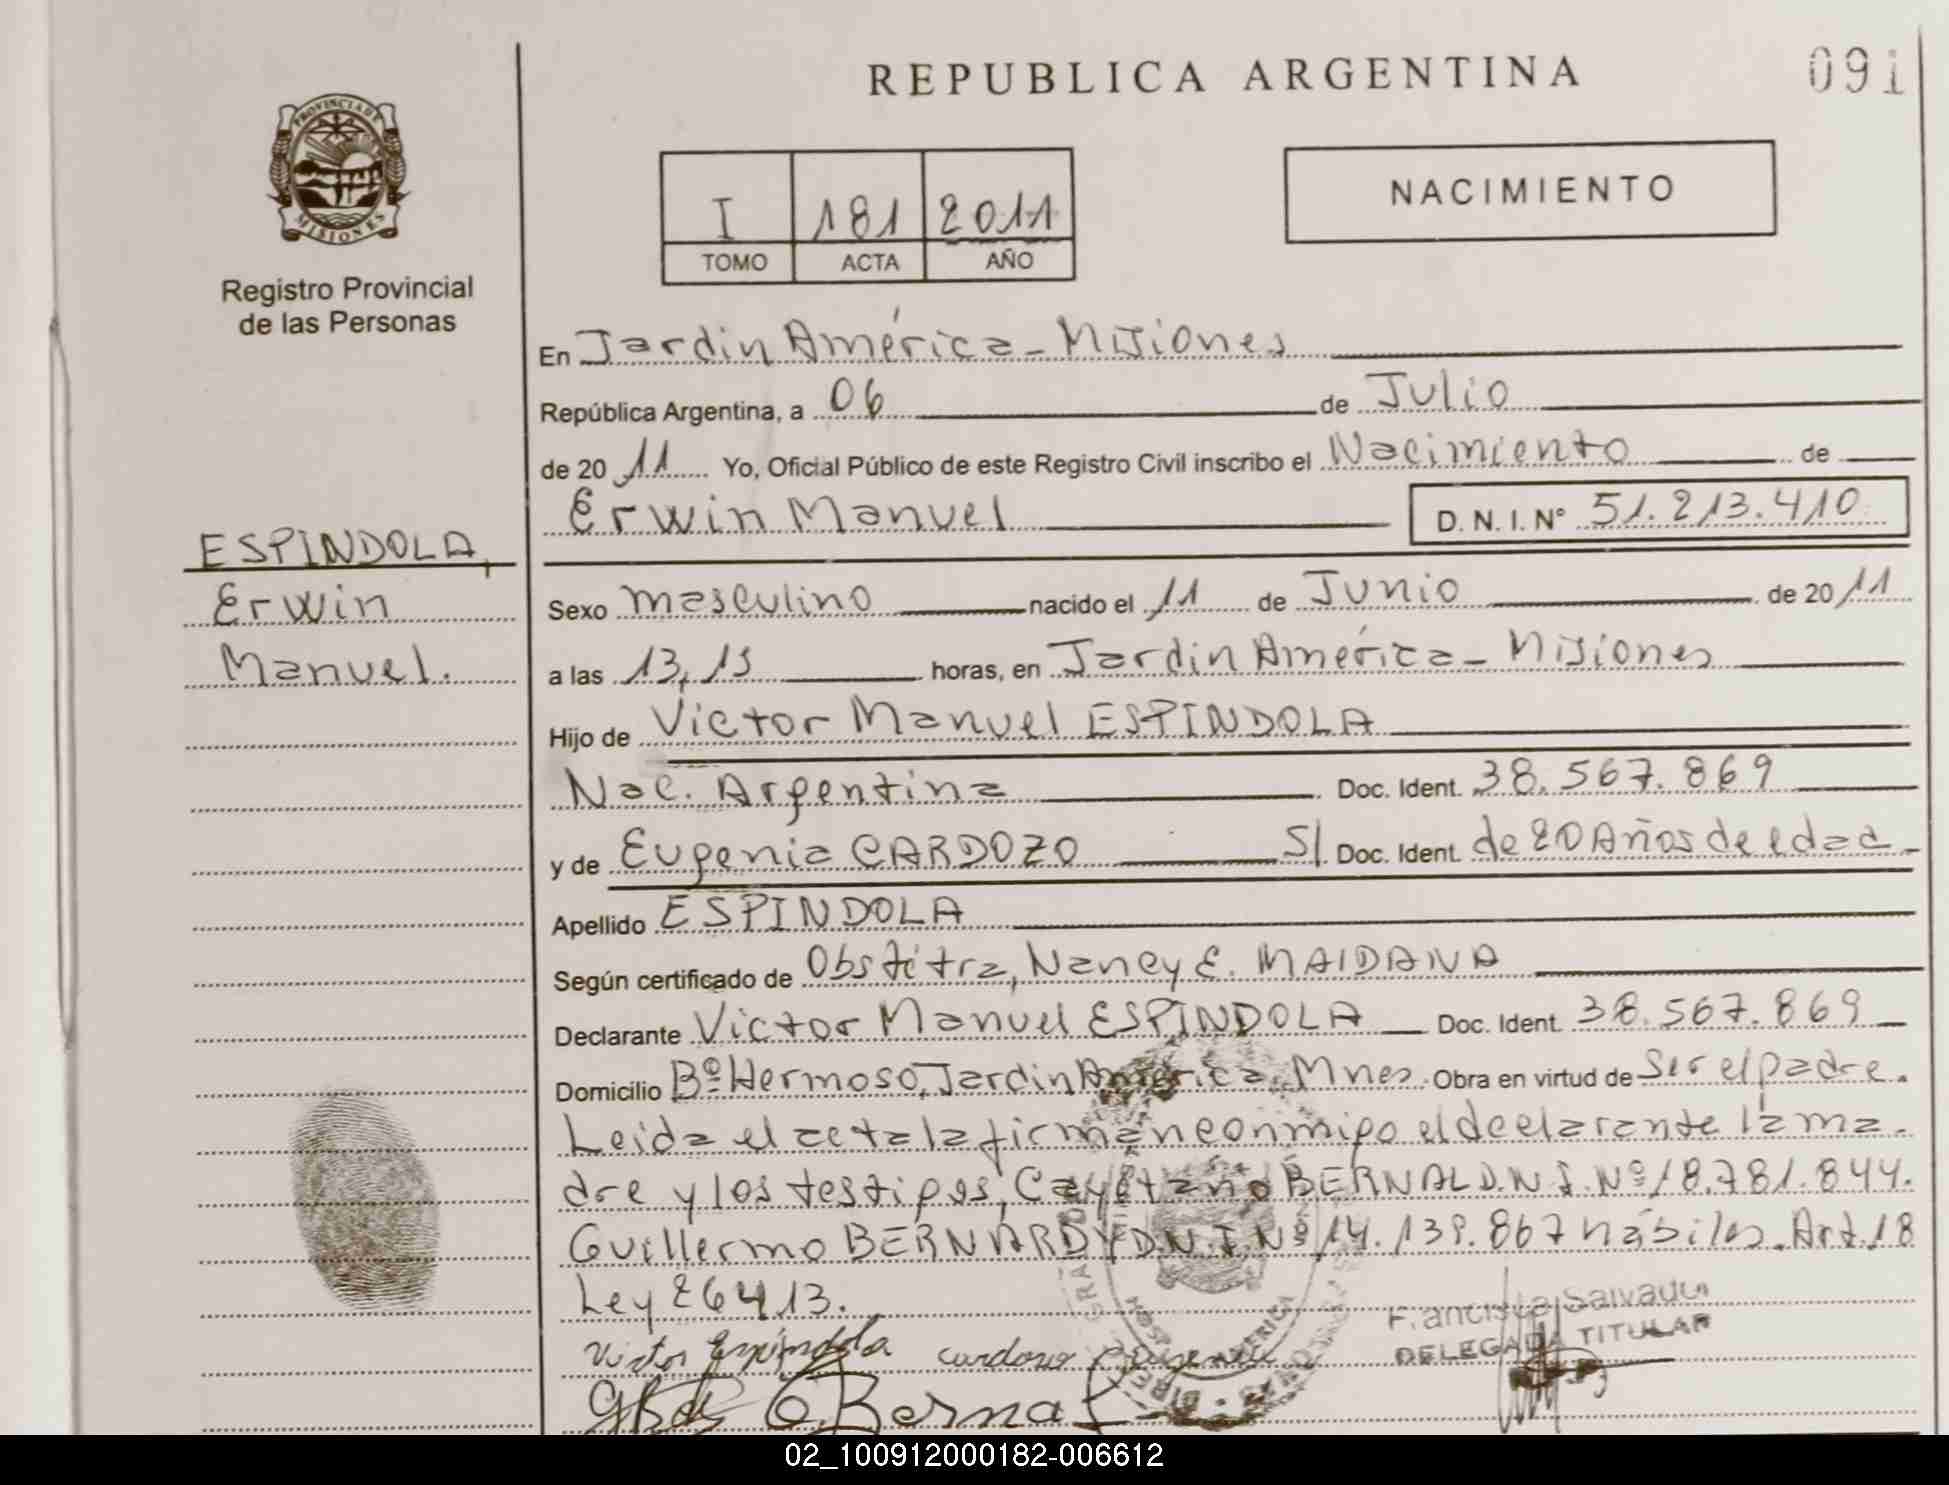 REPUBLICA ARGENTINA
091
PROVINCIA DE
MISIONES
Registro Provincial
de las Personas
I 181 2011
TOMO ACTA AÑO
NACIMIENTO
En Jardin América - Misiones
República Argentina, a 06 de Julio
de 20 11 Yo, Oficial Público de este Registro Civil inscribo el Nacimiento de
Erwin Manuel D. N. I. Nº 51.213.410
ESPINDOLA,
Erwin
Manuel.
Sexo masculino nacido el 11 de Junio de 20 11
a las 13,15 horas, en Jardin América - Misiones
Hijo de Victor Manuel ESPINDOLA
Nac. Argentina Doc. Ident. 38.567.869
y de Eugenia CARDOZO S/ Doc. Ident. de 20 Años de edad
Apellido ESPINDOLA
Según certificado de Obstétra, Nancy E. MAIDANA
Declarante Victor Manuel ESPINDOLA Doc. Ident. 38.567.869
Domicilio Bº Hermoso, Jardin América, Mnes. Obra en virtud de Ser el padre.
Leida el acta la firman conmigo el declarante la ma-
dre y los testigos, Cayetano BERNAL D.N.I. Nº 18.781.844.
Guillermo BERNARDY D.N.I. Nº 14.139.867 hábiles. Art. 18
Ley 26413.
Francisca Salvador
DELEGADA TITULAR
Victor Espindola cardozo Eugenia
C. Bernal
02_100912000182-006612